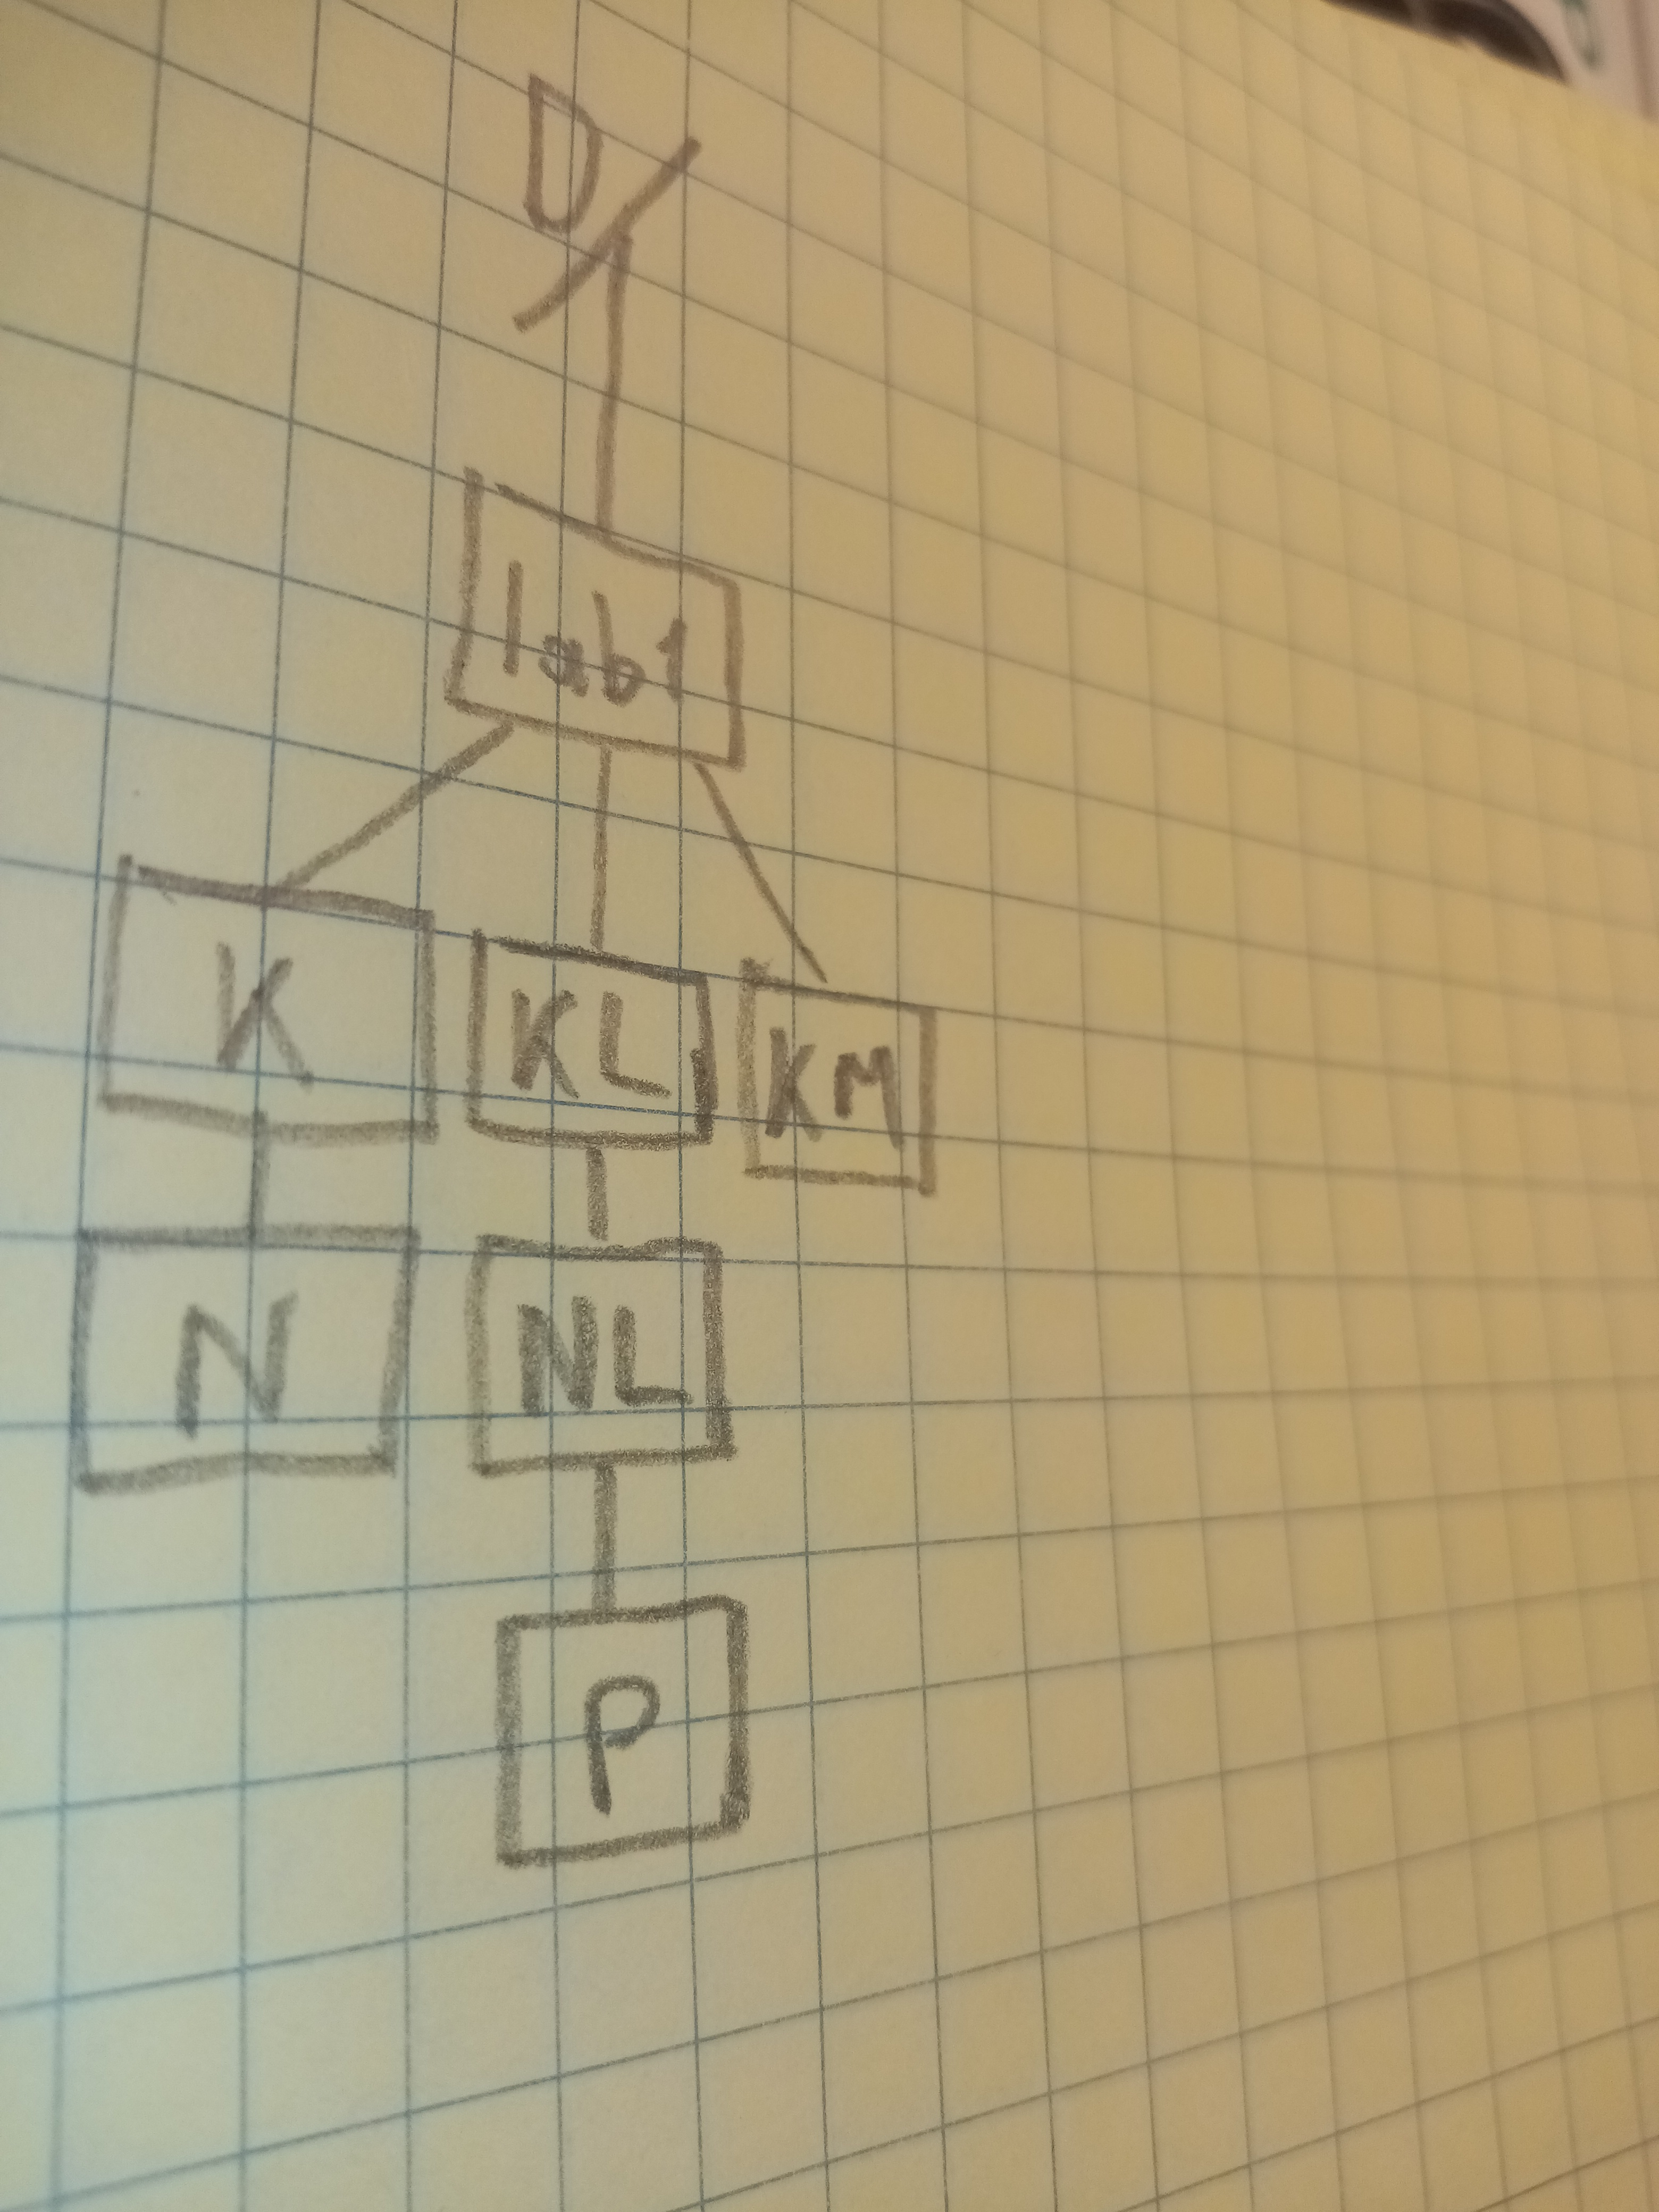 D
lab1
K KL KM
N NL
P